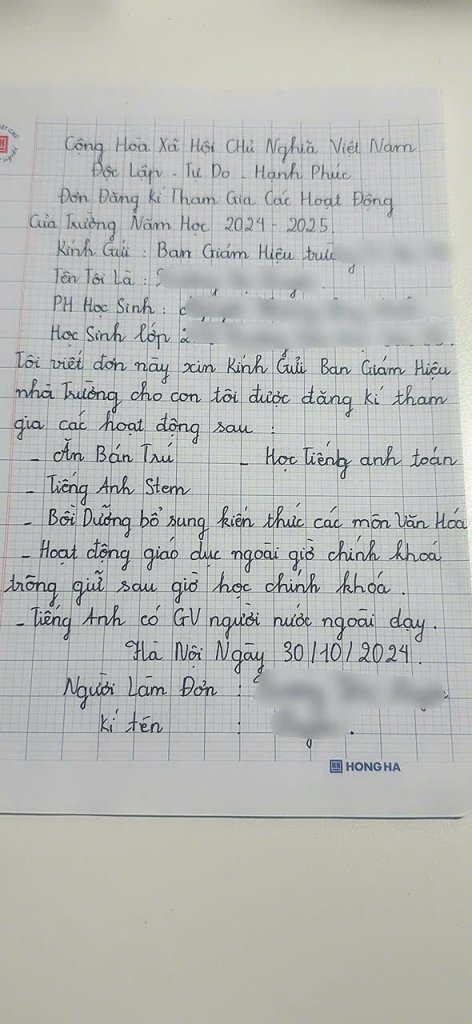 Cộng Hòa Xã Hội Chủ Nghĩa Việt Nam
Độc Lập - Tự Do - Hạnh Phúc
Đơn Đăng Kí Tham Gia Các Hoạt Động
Của Trường Năm Học 2024 - 2025
Kính Gửi : Ban Giám Hiệu
Tên Tôi Là :
PH Học Sinh :
Học Sinh lớp 2
Tôi viết đơn này xin Kính Gửi Ban Giám Hiệu
nhà Trường cho con tôi được đăng kí tham
gia các hoạt động sau :
- Ăn Bán Trú - Học Tiếng anh toán
- Tiếng Anh Stem
- Bồi Dưỡng bổ sung kiến thức các môn Văn Hóa
- Hoạt động giáo dục ngoài giờ chính khoá
trông giữ sau giờ học chính khóa.
- Tiếng Anh có GV người nước ngoài dạy.
Hà Nội Ngày 30/10/2024.
Người Làm Đơn :
Kí tên :
HONG HA